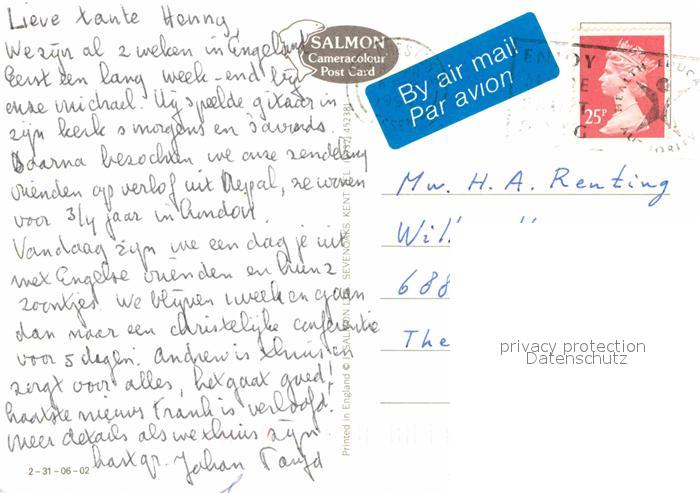 Lieve tante Henny,
We zijn al 2 weken in Engeland
Eerst een lang week-end bij
onze Michael. Hij speelde gitaar in
zijn kerk s'morgens en s'avonds.
Daarna bezochten we onze zendeling
vrienden op verlof uit Nepal, ze wonen
voor 3/4 jaar in
Vandaag zijn we een dagje uit
met Engelse vrienden en hun 2
zoontjes. We blijven 1 week en gaan
dan naar een christelijke conferentie
voor 5 dagen. Andrew is thuis en
zorgt voor alles, het gaat goed!
laatste nieuws Frank is verloofd.
Meer details als we thuis zijn
hart. gr. Johan
2-31-06-02
SALMON
Cameracolour
Post Card
Printed in England © J. SALMON LTD., SEVENOAKS, KENT. TEL. (0732) 452381
By air mail
Par avion
ENJOY
25P
HEALTH EDUCA
AUTHORITIES
Mw. H. A. Renting
Wil
688
The
privacy protection
Datenschutz